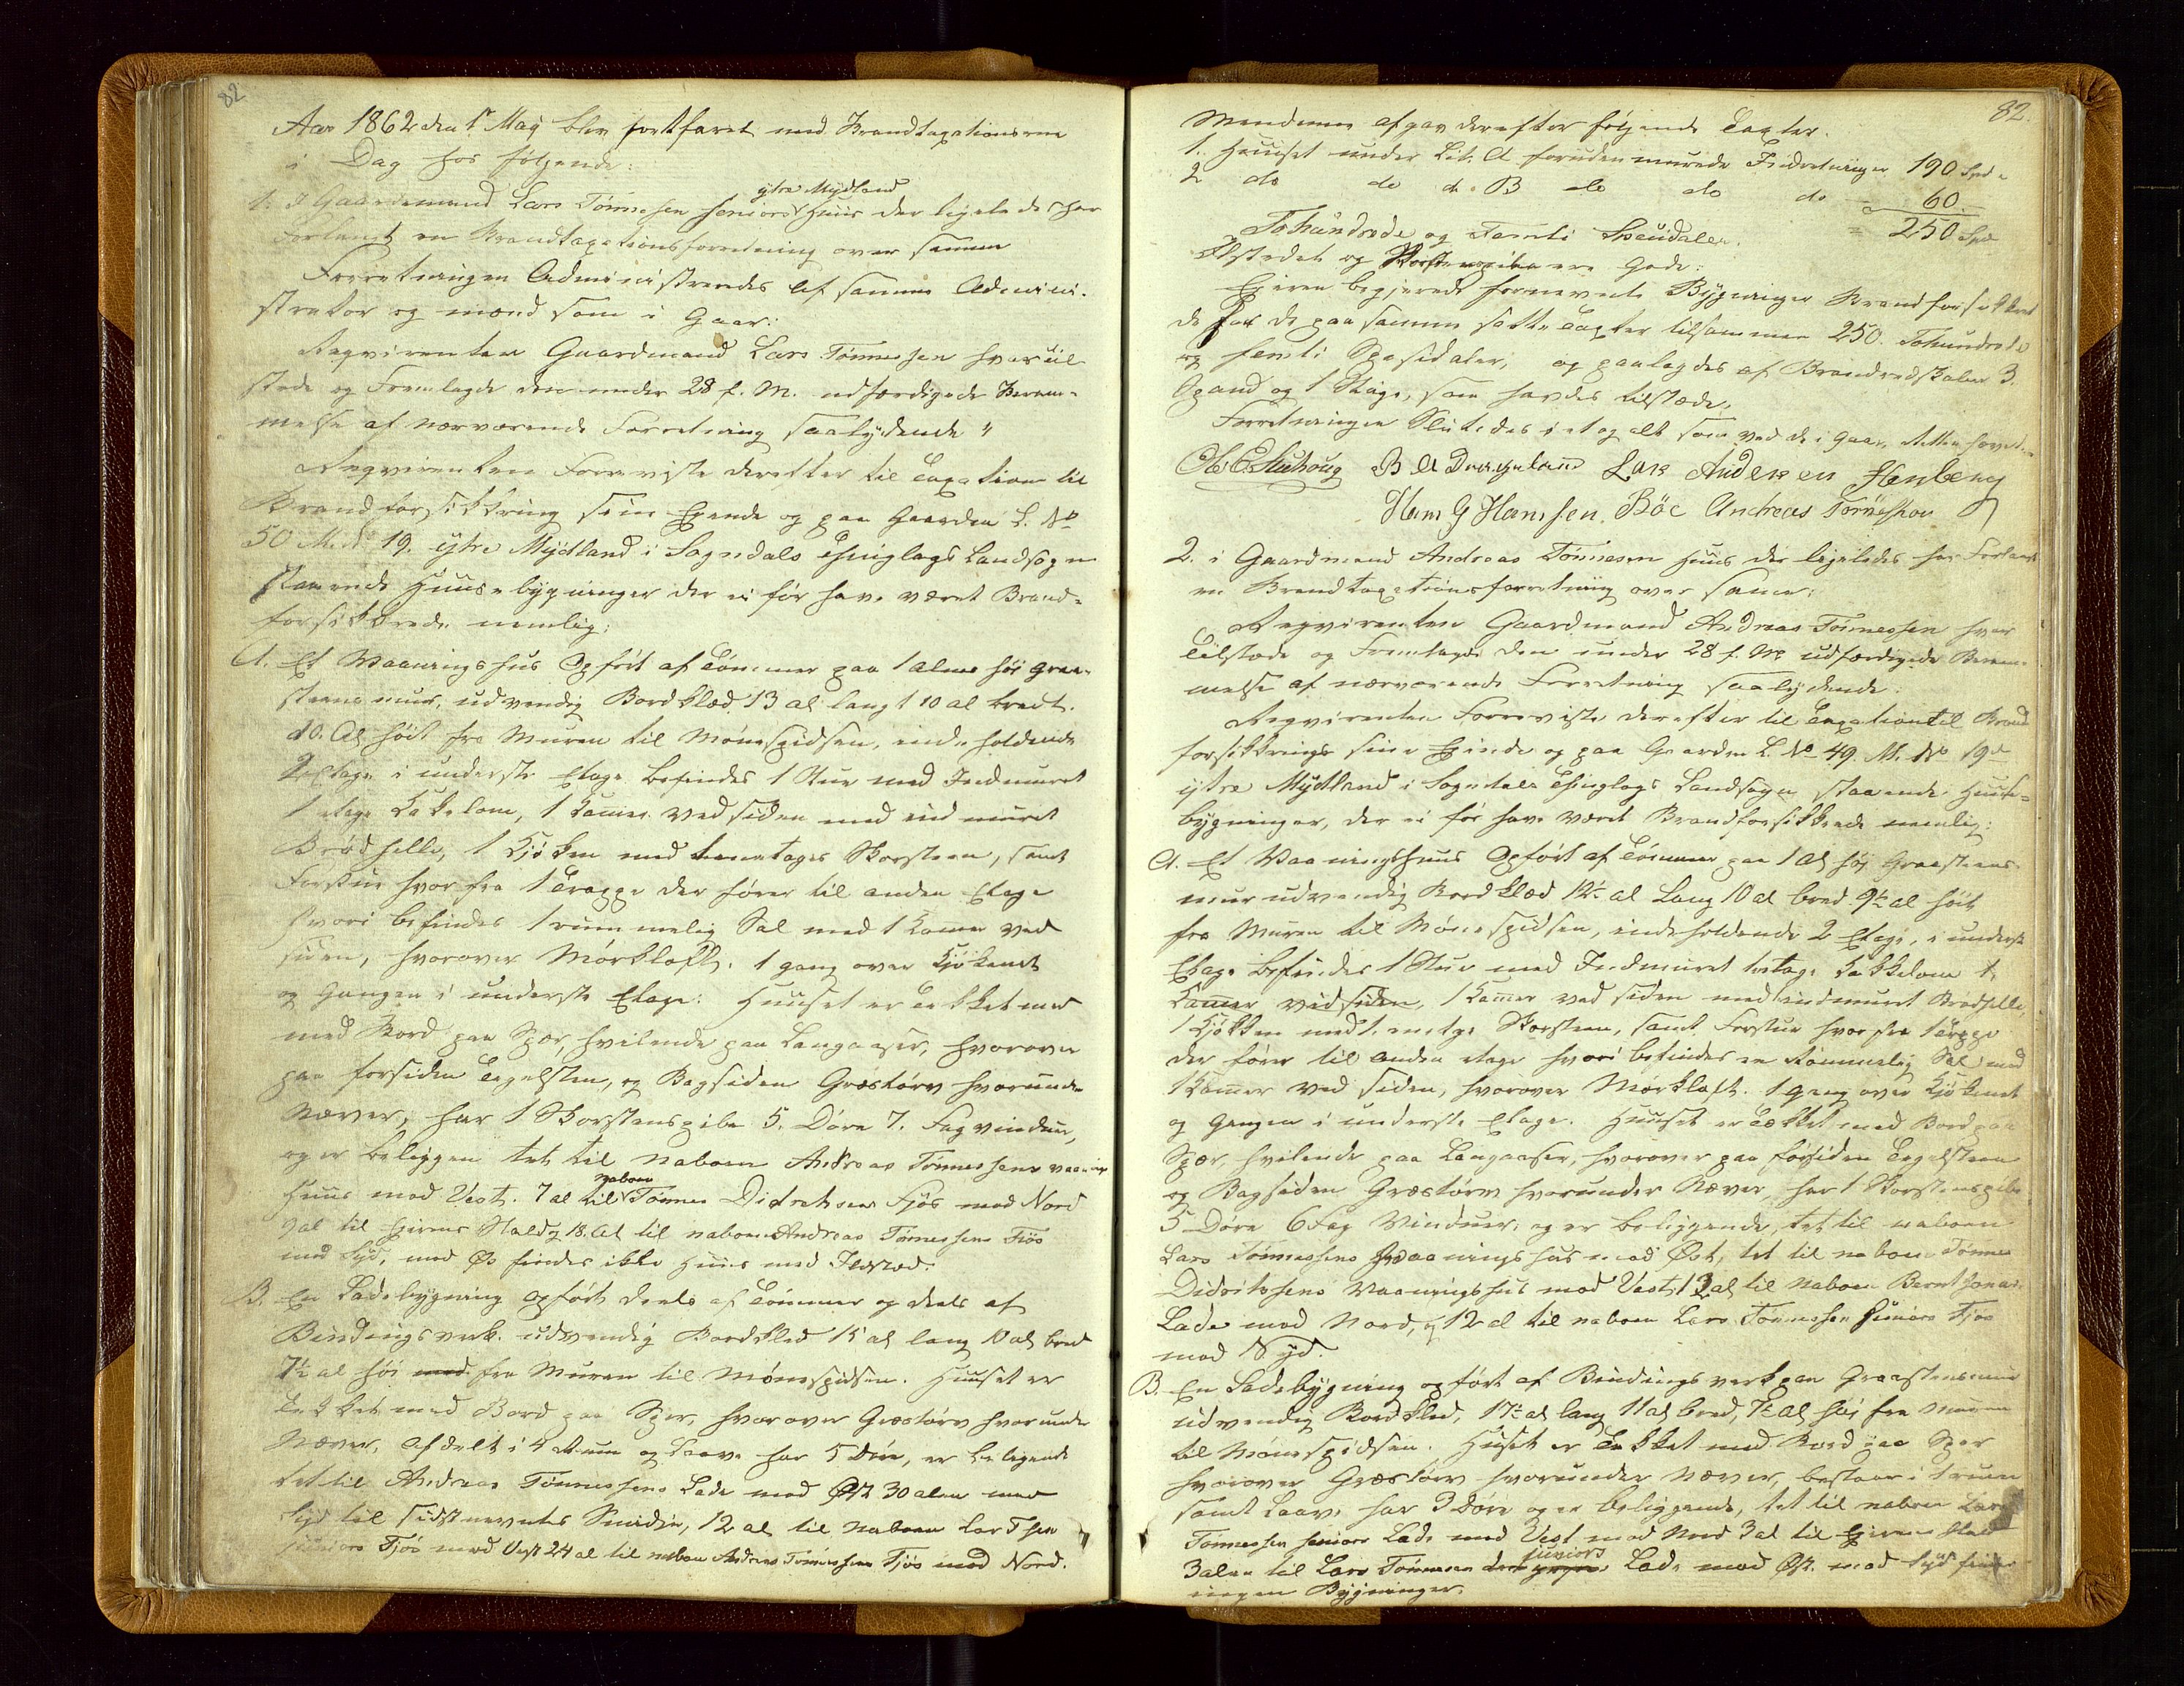 82
Aar 1862 den 1ste May blev fortfaret med Brandtaxationerne
i Dag hos følgende:
1. I Gaardmand Lars Tønnesen Seniors ytre Mydland Huus der ligeledes har
forlangt en Brandtaxationsforretning over samme
Forretningen Administreredes af samme Admini-
strator og mænd som i Gaar:
Reqvirenten Gaardmand Lars Tønnessen hvar til
stede og Fremlagde den under 28 f. M. udfærdigede Beram-
melse af nærværende Forretning saalydende "
Reqvirenten Foreviste derefter til Taxation til
Brandforsikkring sine Eiende og paa Gaarden L. No
50 M. No 19. ytre Mydland i Sogndals Thinglags Landsogn
staaende Huusebygninger der ei før have været Brand-
forsikkrede nemlig:
A. Et Vaaningshus Opført af Tømmer paa 1 alens høi Graa-
steens muur, udvendig Bordklæd 13 al langt 10 al bredt.
10. Al høit fra Muren til Mønespidsen, inde holdende
2 Etage i underste Etage befindes 1 Stue med Indmuret
1 etage Kakelovn, 1 Kamer ved siden med ind muret
Brødhelle, 1 Kjøken med tveetages Skorsteen, samt
Forstue hvor fra 1 Trappe der fører til anden Etage
hvori befindes 1 rummelig Sal med 1 Kamer ved
siden, hvorover Mørkloft. 1 gang over Kjøkenet
og Gangen i underste Etage: Huuset er Tækket med
med Bord paa Spær, hvilende paa Langaaser, hvorover
paa forsiden Tegelsten, og Bagsiden Græstørv hvorunder
Næver, har 1 Skorstenspibe 5. Døre 7. Fag vinduer,
og er beliggen tet til naboen Andreas Tønnessens vaanings
Huus mod Vest. 7 al til naboen Tønnes Didriksens Fjøs mod Nord
val til Eierens Stald og 18. Al til naboen Andreas Tønnessens Fjøs
mod Syd, mod Øst findes ikke Huus med Ildsted.
B. En Ladebygning opført deels af Tømmer og deels af
Bindingsverk. udvendig Bordklæd 15 al lang 10 al bred
7½ al høi med fra Muren til Mønespidsen. Huuset er
Tækket med Bord paa Spær, hvorover Græstørv hvorunder
Næver, afdelt i 4 Rum og Laave har 5 Døre, er beliggende
tet til Andreas Tønnessens Lade mod Øst 30 alen mod
Syd til sidstnevntes Smidie, 12 al til naboen Lars Tsen
juniors Fjøs mod Vest 24 al til naboen Andreas Tønnessens Fjøs mod Nord.
82.
Mendenne afgav derefter følgende Taxter.
1. Huuset under Lit. A foruden murede Indretninger 190 Spd.
2 do do do B do do do 60
250 Spd
Tohundrede og Femti Speciedaler.
Ildstedet og Skorstenspiben ere Gode:
Eieren begjerede fornevnte Bygninger Brandforsikkret
de for de paa samme satte Taxter tilsammen 250. Tohundrede
og femti Spesidaler, og paalagdes af Brandredskaber 3.
Spand og 1 Stige, som havdes tilstede.
Forretningen Slutedes i et og alt som ved de i Gaar,
B A Drageland Lars Andersen Stenberg
Hans G Hansen. Bøe Andreas Tørneskov
2. i Gaardmand Andreas Tønnesen Huus der ligeledes har Forlangt
en Brandtaxationsforretning over same:
Reqvirenten Gaardmand Andreas Tønnessen hvar
Tilstede og Fremlagde den under 28 f. M udfærdigede Beram-
melse af nærværende Forretning saalydende:
Reqvirenten Foreviste derefter til Taxation til Brand
forsikkrings sine Eiende og paa Gaarden L. No 49. M. No 19de
ytre Mydland i Sogndals Thinglags Landsogn staaende Huuse-
bygninger, der ei før have været Brandforsikkrede nemlig:
A. Et Vaaningshuus Opført af Tømmer paa 1 Al høi Graasteens
mur udvendig Bordklæd 12½ al Lang 10 al bred 9½ al høit
fra Muren til Mønespidsen, indeholdende 2 Etage, i underste
Etage befindes 1 Stue med Indmuret 1 etage Kakkelovn 1.
Kamer ved siden, 1 Kamer ved siden med indmuret Brødhelle,
1 Kjøkken med 1. enetge Skorsteen, samt Forstue hvor fra 1 Trappe
der fører til anden etage hvori befindes en Rummelig Sal med
1 Kamer ved siden, hvorover Mørkloft. 1 gang over Kjøkenet
og Gangen i underste Etage. Huuset er Tækket med Bord paa
Spær, hvilende paa Langaaser, hvorover paa forsiden Tegelsteen
og Bagsiden Græstørv hvorunder Næver, har 1 Skorstenspibe
5 Døre 6 Fag Vinduer, og er beliggende, tet til naboen
Lars Tønnessens vaaningshus mod Øst, tet til naboen Tønnes
Didriksens Vaaningshus mod Vest, 13 al til naboen
Lade mod Nord, og 12 al til naboen Lars Tønnessen juniors Fjøs
mod Syd.
B. En Ladebygning opført af Bindingsverk paa Graastensmur
udvendig Bordklæd, 17½ al lang 11 al bred, 7½ al høi fra Muren
til Mønespidsen. Huset er Tækket med Bord paa Spær
hvorover Græstørv hvorunder Næver, bestaar i 1 rum
samt Laave har 3 Døre og er beliggende, tet til naboen Lars
Tønnessen Seniors Lade mod Vest mod Nord 3 al til Eierens Stald
3 alen til Lars Tønnesen juniors Lade mod Øst. mod Syd findes
ingen Bygninger.